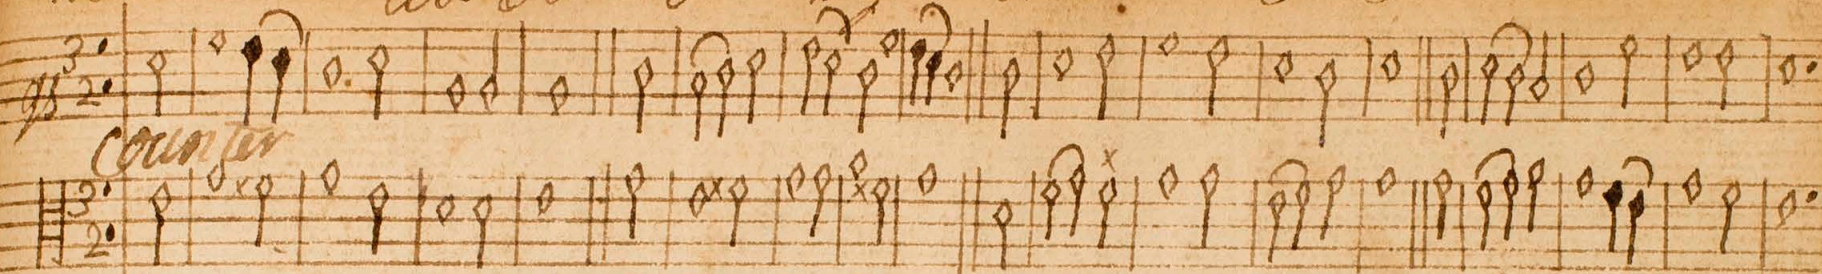 3.
2.
Counter
3.
2.